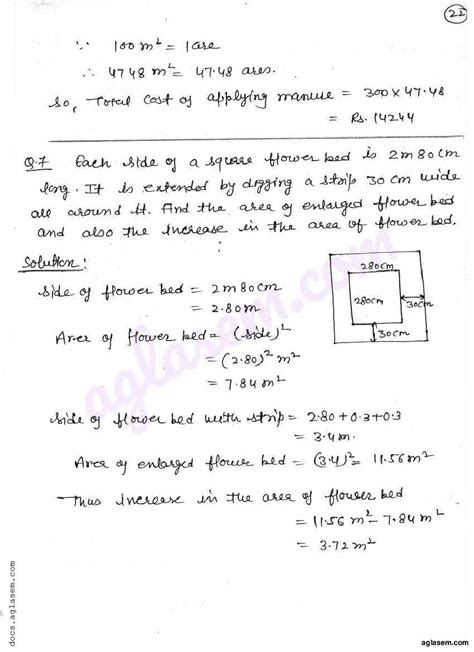 22
∵ 100 m² = 1 are
∴ 4748 m² = 47.48 ares.
So, Total cost of applying manure = 300 × 47.48
= Rs. 14244
Q.7 Each side of a square flower bed is 2m 80cm
long. It is extended by digging a strip 30 cm wide
all around it. Find the area of enlarged flower bed
and also the increase in the area of flower bed.
Solution:
280cm
280cm
30cm
30cm
Side of flower bed = 2m 80cm
= 2.80m
Area of flower bed = (side)²
= (2.80)² m²
= 7.84 m²
Side of flower bed with strip = 2.80 + 0.3 + 0.3
= 3.4m.
Area of enlarged flower bed = (3.4)² = 11.56 m²
Thus increase in the area of flower bed
= 11.56 m² - 7.84 m²
= 3.72 m²
aglasem.com
docs.aglasem.com
aglasem.com